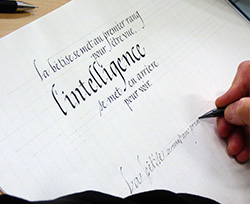 la bêtise se met au premier rang
pour être vue,
l'intelligence
se met en arrière
pour voir.
la bêtise